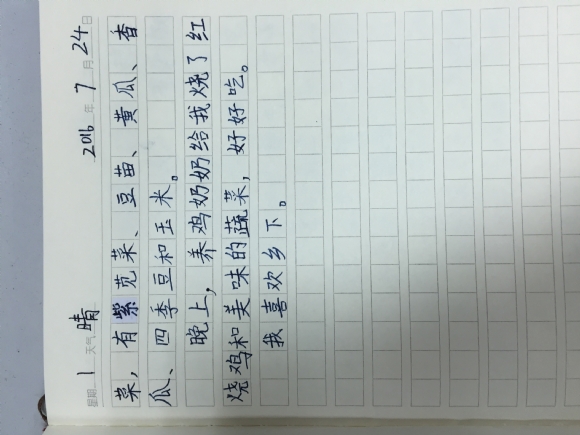 星期 1 天气 晴 2016 年 7 月 24 日
菜，有紫苋菜、豆苗、黄瓜、香
瓜、四季豆和玉米。
晚上，养鸡奶奶给我烧了红
烧鸡和美味的蔬菜，好好吃。
我喜欢乡下。